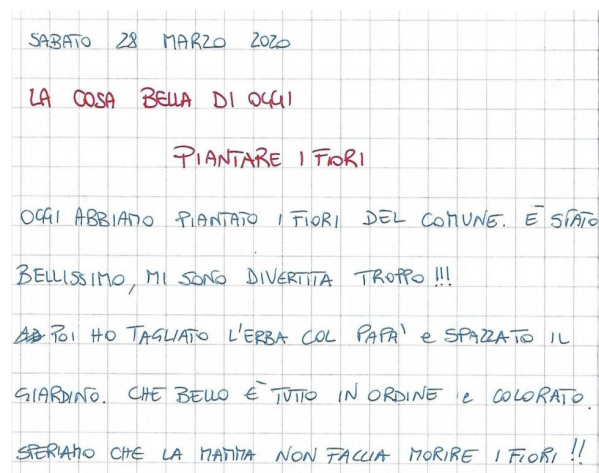 SABATO 28 MARZO 2020
LA COSA BELLA DI OGGI
PIANTARE I FIORI
OGGI ABBIAMO PIANTATO I FIORI DEL COMUNE. È STATO
BELLISSIMO, MI SONO DIVERTITA TROPPO !!!
POI HO TAGLIATO L'ERBA COL PAPA' e SPAZZATO IL
GIARDINO. CHE BELLO È TUTTO IN ORDINE e COLORATO.
SPERIAMO CHE LA MAMMA NON FACCIA MORIRE I FIORI !!